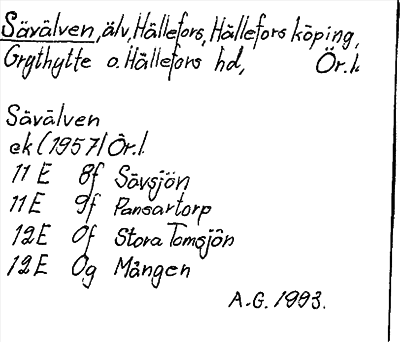 Sävälven, älv, Hällefors, Hällefors köping,
Grythytte o. Hällefors hd, Ör.l.
Sävälven
ek (1957) Ör.l.
11 E 8f Sävsjön
11 E 9f Pansartorp
12 E 0f Stora Tomsjön
12 E 0g Mången
A.G. 1993.